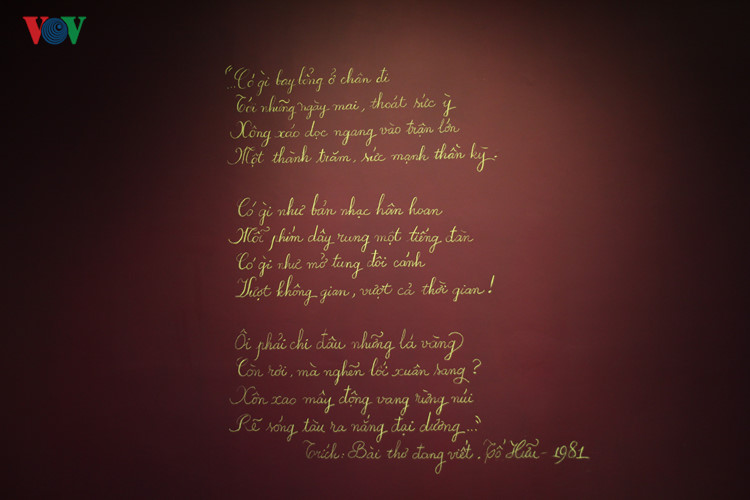 VOV
"...Có gì bay lỏng ở chân đi
Tới những ngày mai, thoát sức ỳ
Xông xáo dọc ngang vào trận lớn
Một thành trăm, sức mạnh thần kỳ.
Có gì như bản nhạc hân hoan
Mỗi phím dây rung một tiếng đàn
Có gì như mở tung đôi cánh
Vượt không gian, vượt cả thời gian!
Ôi phải chi đâu những lá vàng
Còn rơi, mà nghẽn lối xuân sang?
Xôn xao mây động vang rừng núi
Rẽ sóng tàu ra nắng đại dương..."
Trích: Bài thơ đang viết. Tố Hữu - 1981